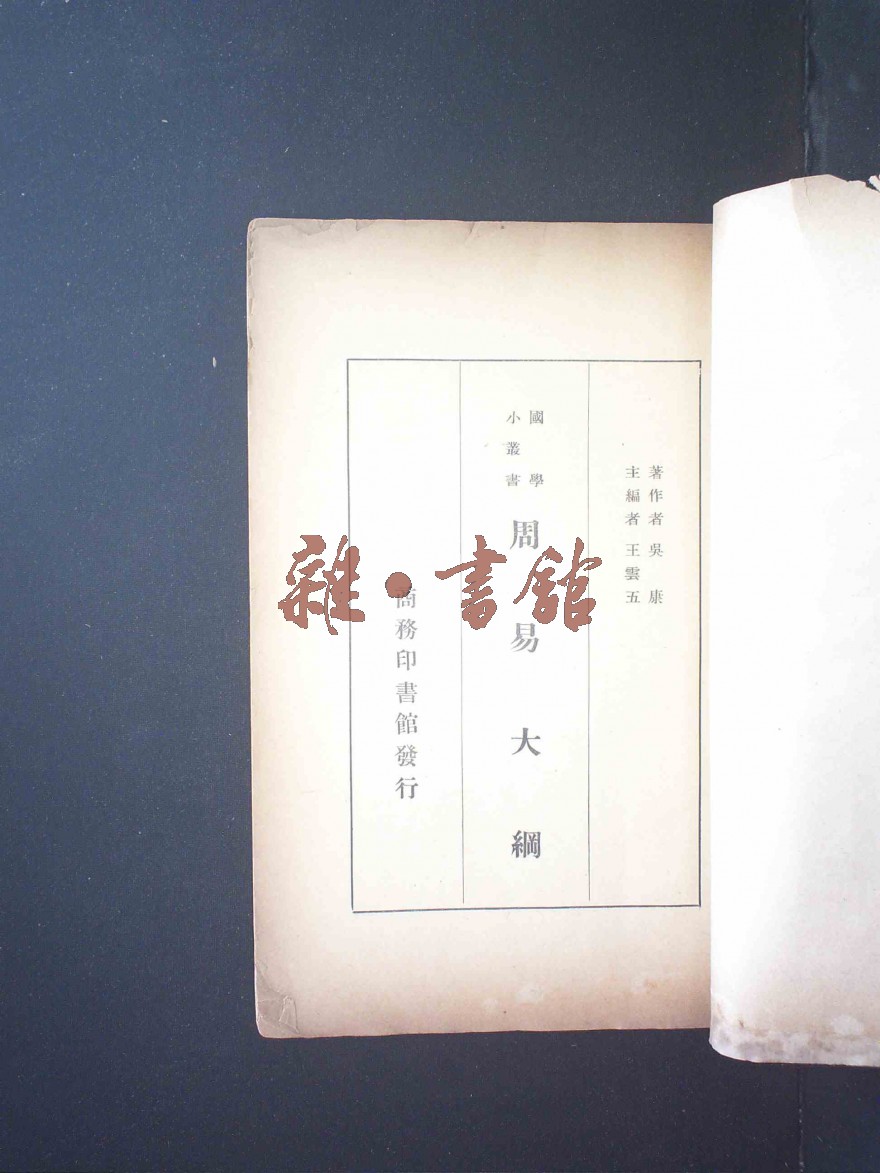 著作者吳康
主編者王雲五
國學
小叢書
周易大綱
商務印書館發行
雜·書館